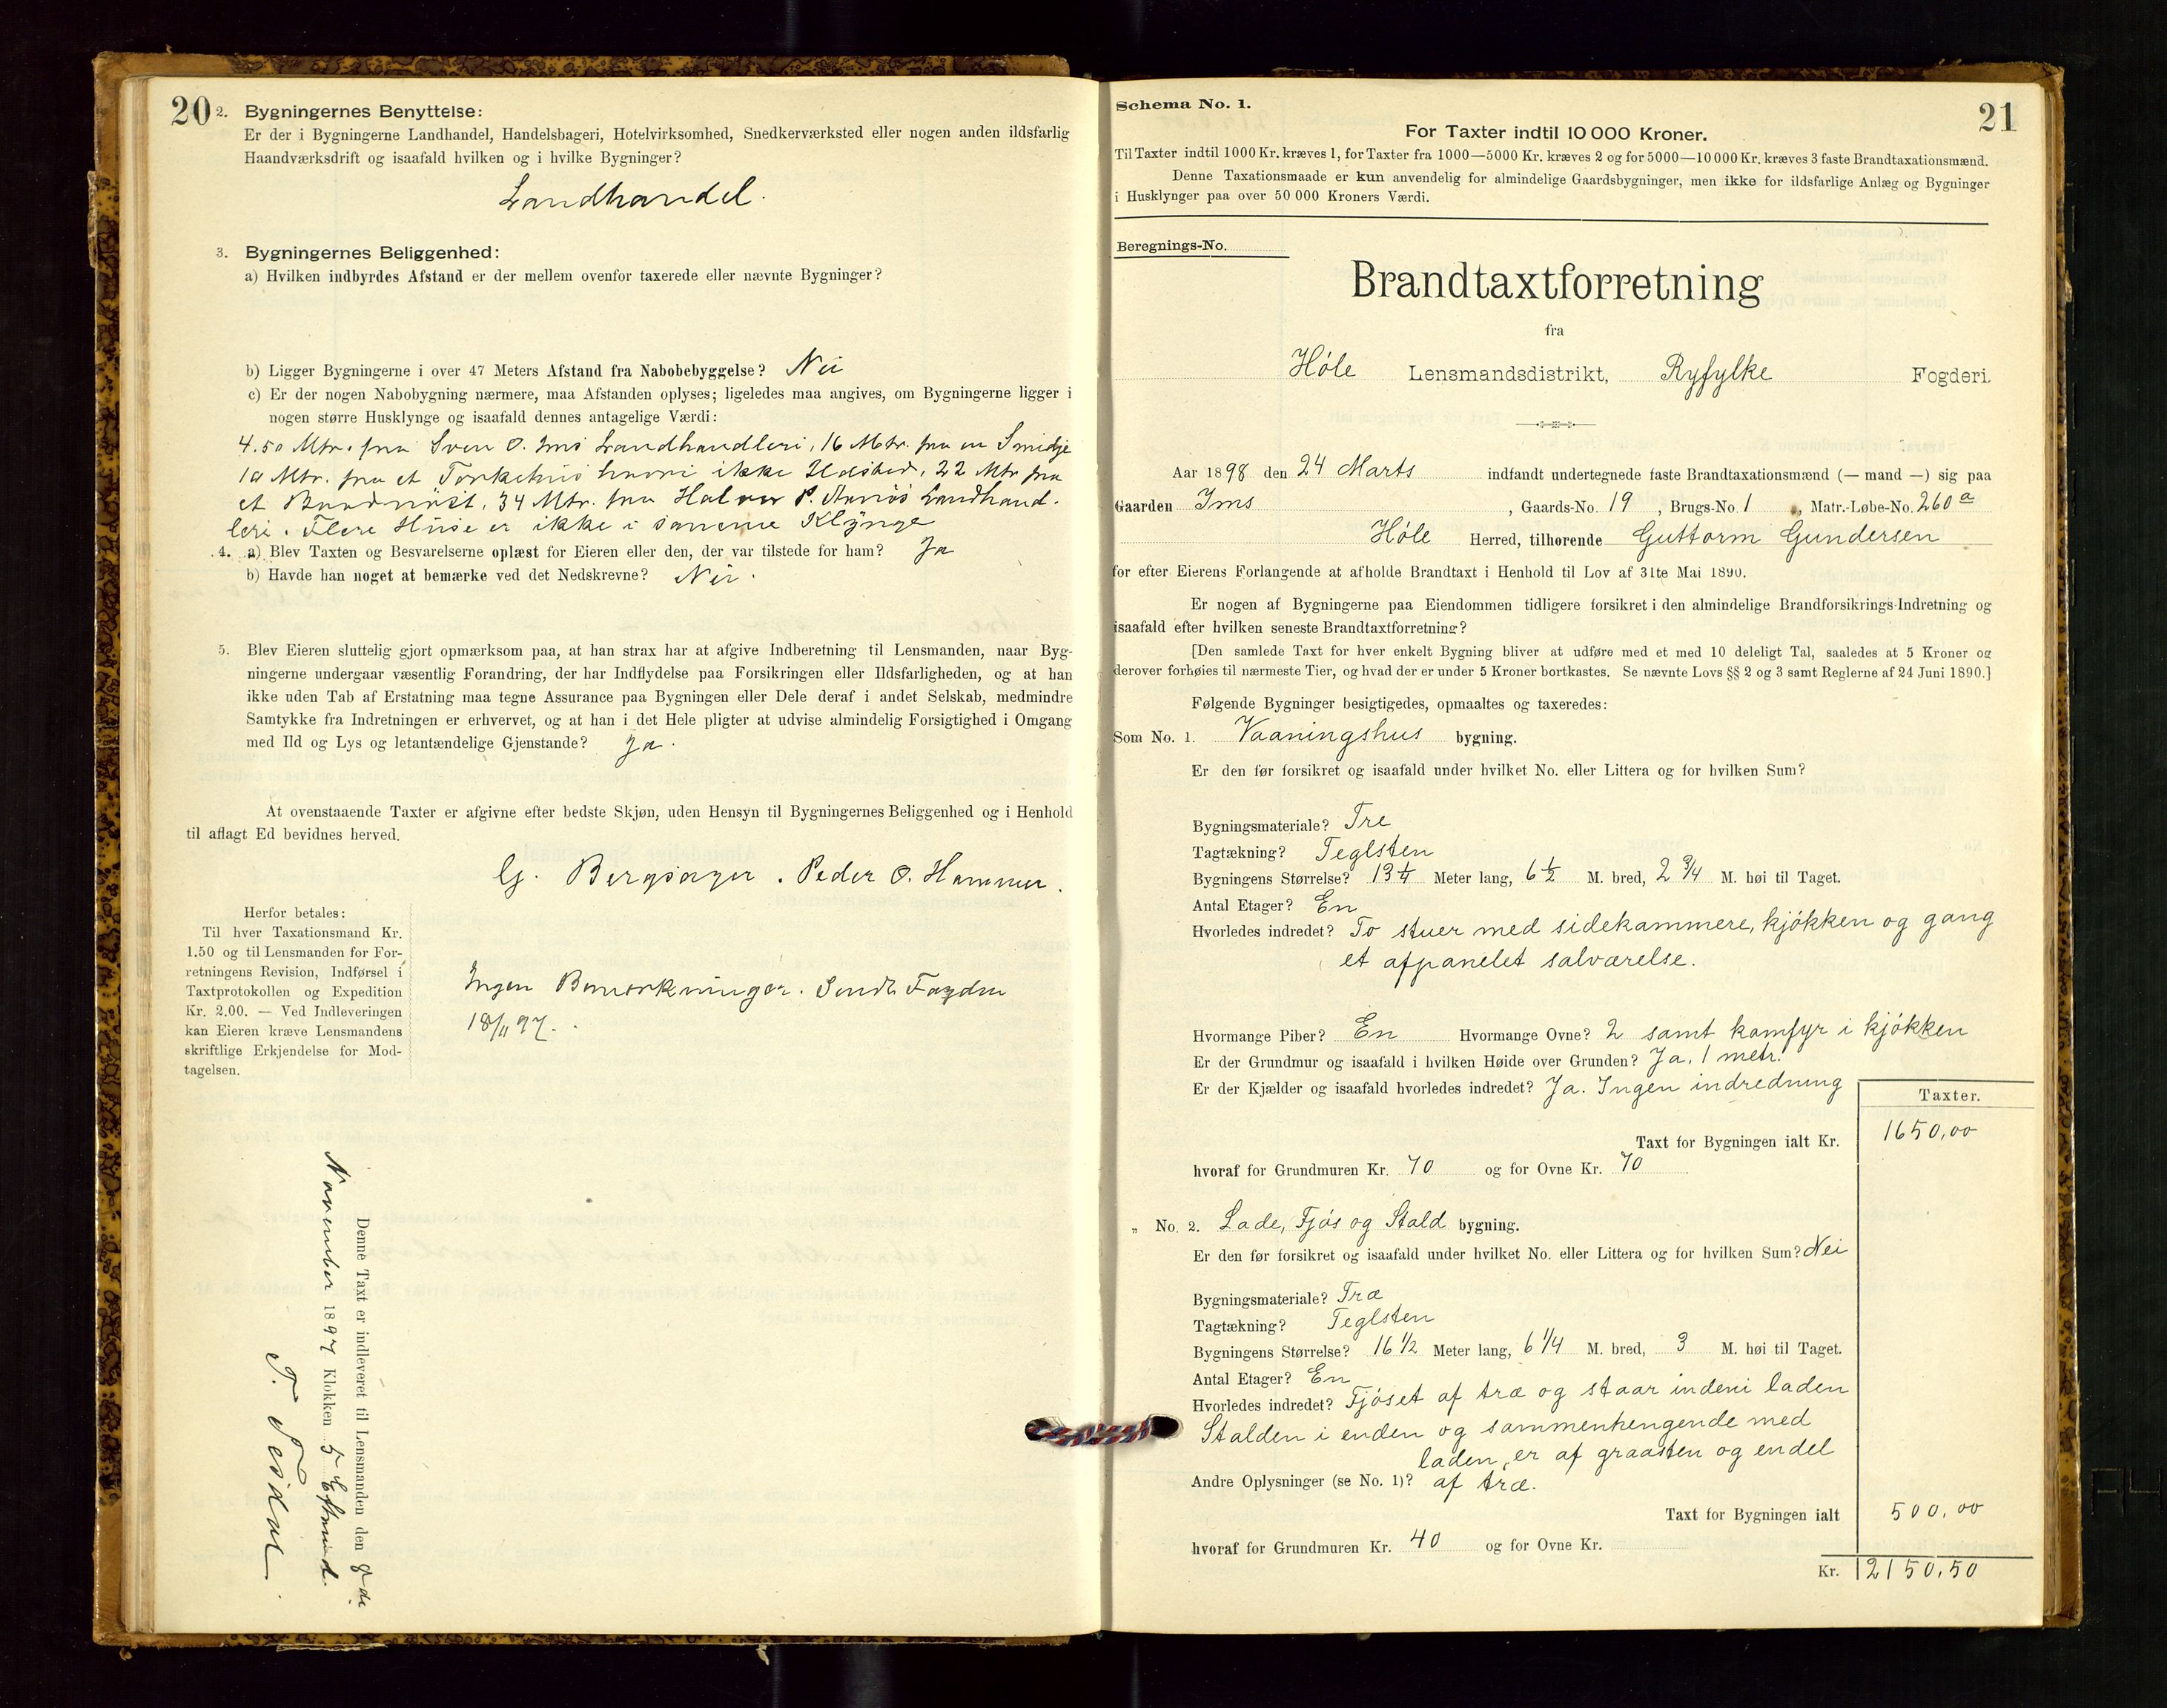 20
2. Bygningernes Benyttelse:
Er der i Bygningerne Landhandel, Handelsbageri, Hotelvirksomhed, Snedkerværksted eller nogen anden ildsfarlig
Haandværksdrift og isaafald hvilken og i hvilke Bygninger?
Landhandel.
3. Bygningernes Beliggenhed:
a) Hvilken indbyrdes Afstand er der mellem ovenfor taxerede eller nævnte Bygninger?
b) Ligger Bygningerne i over 47 Meters Afstand fra Nabobebyggelse? Nei
c) Er der nogen Nabobygning nærmere, maa Afstanden oplyses; ligeledes maa angives, om Bygningerne ligger i
nogen større Husklynge og isaafald dennes antagelige Værdi:
4.50 Mtr. fra Sven O. Ims Landhandleri, 16 Mtr. fra en Smidje
10 Mtr. fra et Tørkehus hvori ikke Ildsted, 22 Mtr fra
et Baadnøst, 34 Mtr. fra Halvor P. Landhand-
leri. Flere Huse er ikke i samme Klynge
4. a) Blev Taxten og Besvarelserne oplæst for Eieren eller den, der var tilstede for ham? Ja
b) Havde han noget at bemærke ved det Nedskrevne? Nei.
5. Blev Eieren sluttelig gjort opmærksom paa, at han strax har at afgive Indberetning til Lensmanden, naar Byg-
ningerne undergaar væsentlig Forandring, der har Indflydelse paa Forsikringen eller Ildsfarligheden, og at han
ikke uden Tab af Erstatning maa tegne Assurance paa Bygningen eller Dele deraf i andet Selskab, medmindre
Samtykke fra Indretningen er erhvervet, og at han i det Hele pligter at udvise almindelig Forsigtighed i Omgang
med Ild og Lys og letantændelige Gjenstande? Ja.
At ovenstaaende Taxter er afgivne efter bedste Skjøn, uden Hensyn til Bygningernes Beliggenhed og i Henhold
til aflagt Ed bevidnes herved.
G. Bergsagel. Peder O. Hammer.
Herfor betales:
Til hver Taxationsmand Kr.
1.50 og til Lensmanden for For-
retningens Revision, Indførsel i
Taxtprotokollen og Expedition
Kr. 2.00. — Ved Indleveringen
kan Eieren kræve Lensmandens
skriftlige Erkjendelse for Mod-
tagelsen.
Ingen Bemerkninger. Sendt Fogden
18/11 97.
Denne Taxt er indleveret til Lensmanden den 8de
November 1897 Klokken 5 Eftermid.
T. Tesdal.
21
Schema No. 1.
For Taxter indtil 10 000 Kroner.
Til Taxter indtil 1000 Kr. kræves 1, for Taxter fra 1000—5000 Kr. kræves 2 og for 5000—10 000 Kr. kræves 3 faste Brandtaxationsmænd.
Denne Taxationsmaade er kun anvendelig for almindelige Gaardsbygninger, men ikke for ildsfarlige Anlæg og Bygninger
i Husklynger paa over 50 000 Kroners Værdi.
Beregnings-No.
Brandtaxtforretning
fra
Høle Lensmandsdistrikt, Ryfylke Fogderi.
Aar 1898 den 24 Marts indfandt undertegnede faste Brandtaxationsmænd (— mand —) sig paa
Gaarden Ims, Gaards-No. 19, Brugs-No. 1, Matr.-Løbe-No. 260a
Høle Herred, tilhørende Guttorm Gundersen
for efter Eierens Forlangende at afholde Brandtaxt i Henhold til Lov af 31te Mai 1890.
Er nogen af Bygningerne paa Eiendommen tidligere forsikret i den almindelige Brandforsikrings-Indretning og
isaafald efter hvilken seneste Brandtaxtforretning?
[Den samlede Taxt for hver enkelt Bygning bliver at udføre med et med 10 deleligt Tal, saaledes at 5 Kroner og
derover forhøies til nærmeste Tier, og hvad der er under 5 Kroner bortkastes. Se nævnte Lovs §§ 2 og 3 samt Reglerne af 24 Juni 1890.]
Følgende Bygninger besigtigedes, opmaaltes og taxeredes:
Som No. 1. Vaaningshus bygning.
Er den før forsikret og isaafald under hvilket No. eller Littera og for hvilken Sum?
Bygningsmateriale? Tre
Tagtækning? Teglsten
Bygningens Størrelse? 13 1/4 Meter lang, 6 1/2 M. bred, 2 3/4 M. høi til Taget.
Antal Etager? En
Hvorledes indredet? To stuer med sidekammere, kjøkken og gang
et afpanelet salværelse.
Hvormange Piber? En Hvormange Ovne? 2 samt komfyr i kjøkken
Er der Grundmur og isaafald i hvilken Høide over Grunden? Ja, 1 metr.
Er der Kjælder og isaafald hvorledes indredet? Ja. Ingen indredning
Taxter.
Taxt for Bygningen ialt Kr. 1650,00
hvoraf for Grundmuren Kr. 70 og for Ovne Kr. 70
„ No. 2. Lade, Fjøs og Stald bygning.
Er den før forsikret og isaafald under hvilket No. eller Littera og for hvilken Sum? Nei
Bygningsmateriale? Træ
Tagtækning? Teglsten
Bygningens Størrelse? 16 1/2 Meter lang, 6 1/4 M. bred, 3 M. høi til Taget.
Antal Etager? En
Hvorledes indredet? Fjøset af træ og staar indeni laden
Stalden i enden og sammenhengende med
laden, er af graasten og endel
Andre Oplysninger (se No. 1)? af træ.
Taxt for Bygningen ialt 500,00
hvoraf for Grundmuren Kr. 40 og for Ovne Kr.
Kr. 2150,50